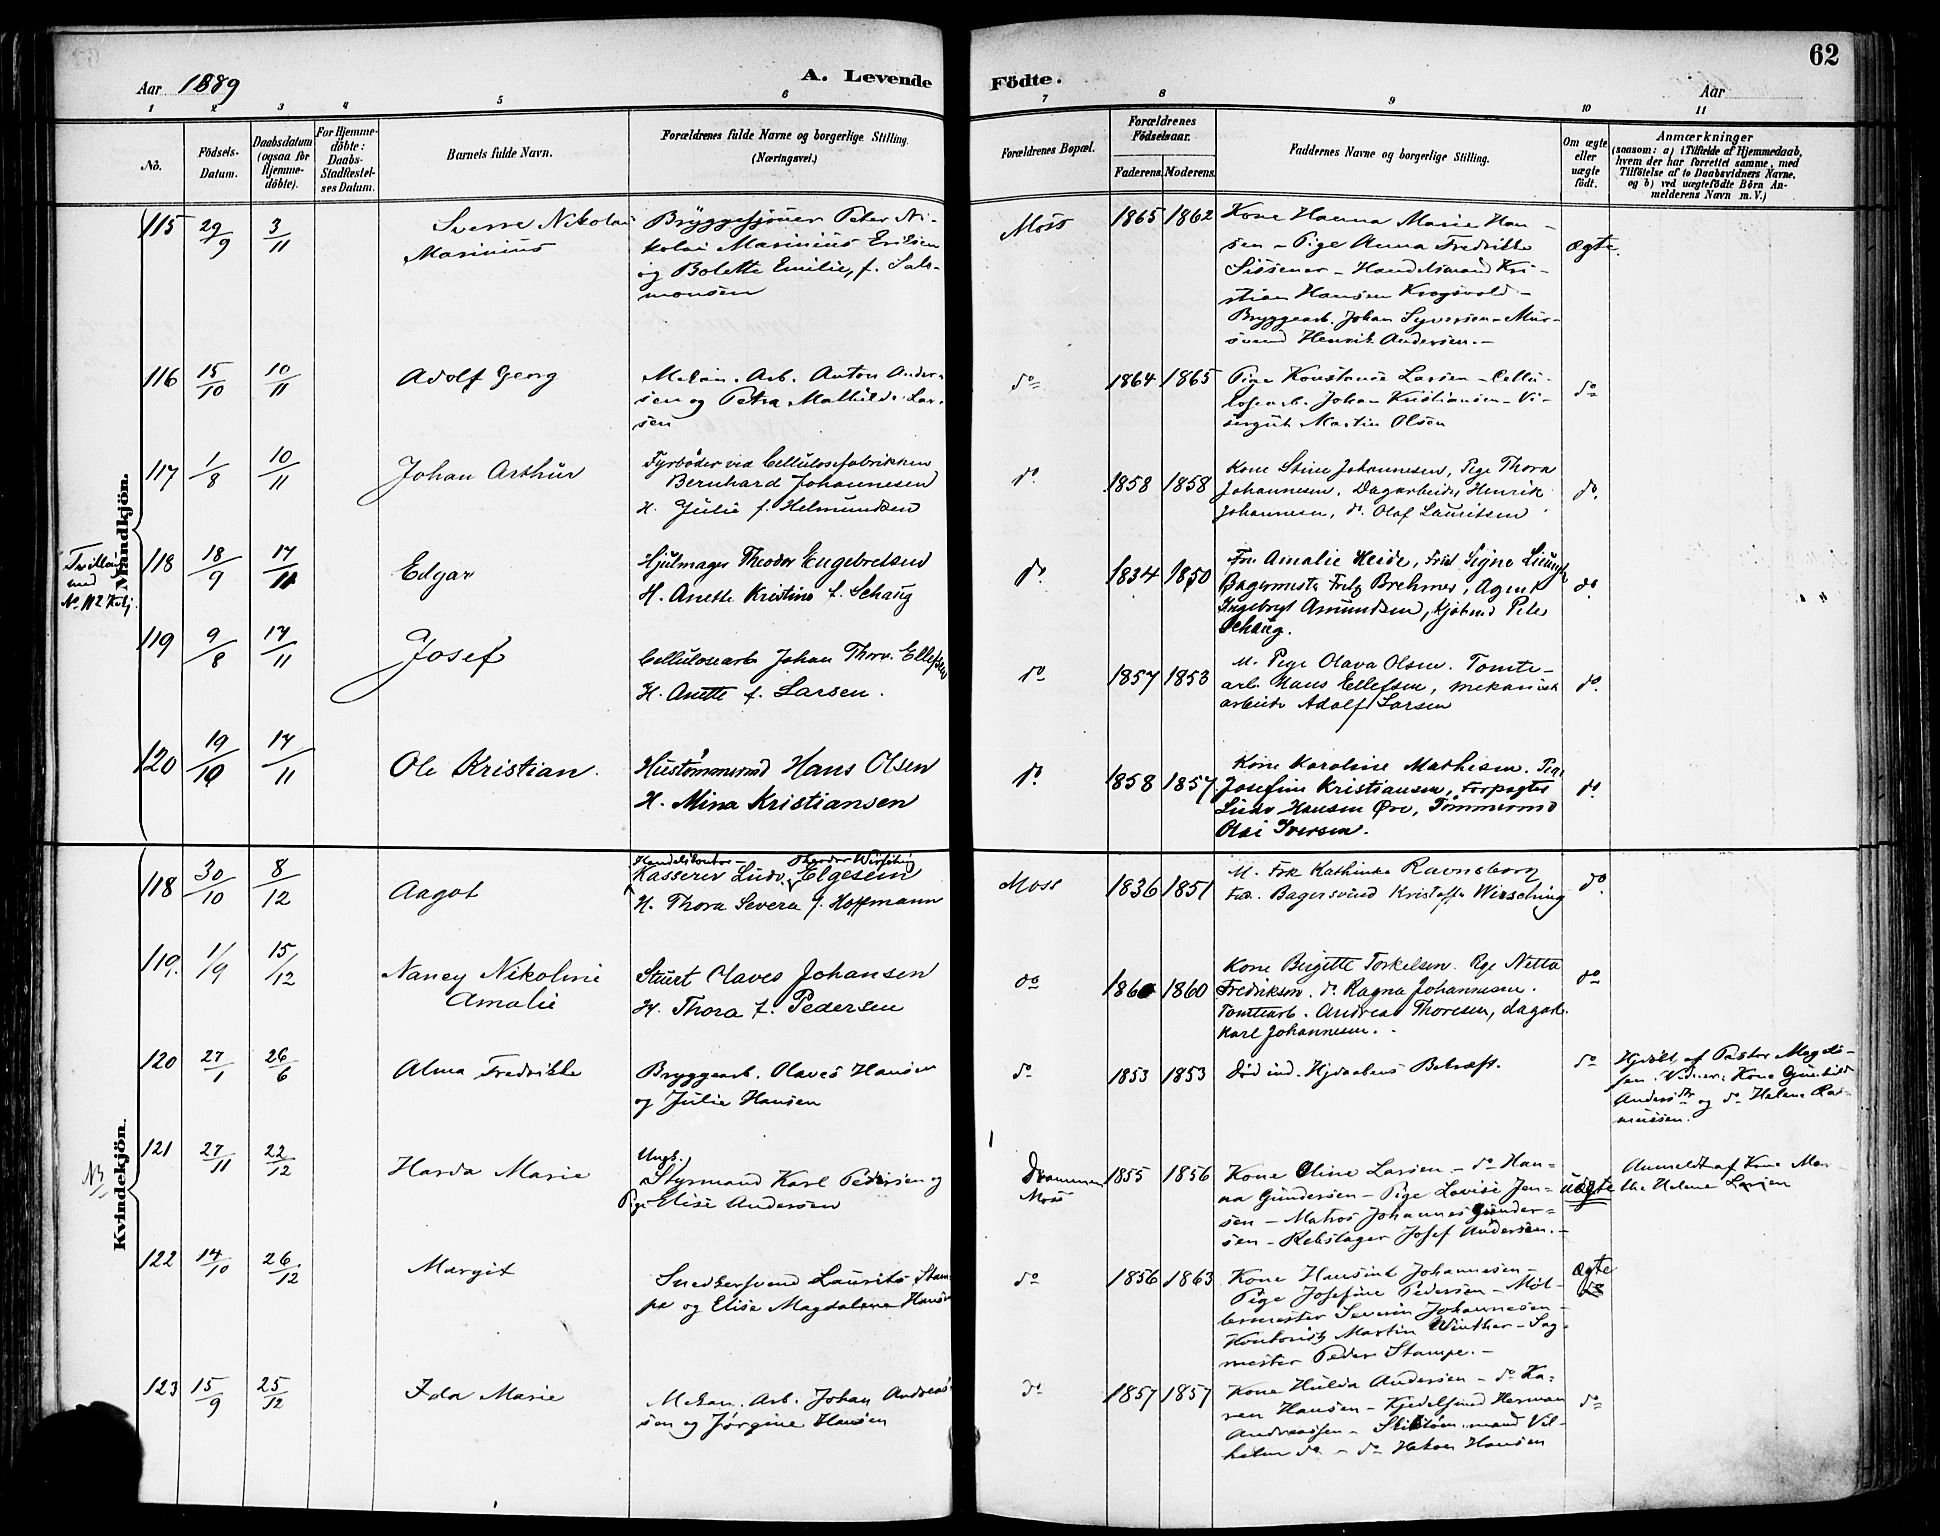 62
Aar 1889
A. Levende
Födte.
Aar
1 2 3 4 5 6 7 8 9 10 11
No.
Födsels-
Datum.
Daabsdatum
(ogsaa for
Hjemme-
döbte).
For Hjemme-
döbte:
Daabs-
Stadfæstel-
ses Datum.
Barnets fulde Navn.
Forældrenes fulde Navne og borgerlige Stilling.
(Næringsvei.)
Forældrenes Bopæl.
Forældrenes
Födselsaar.
Faderens.
Moderens.
Faddernes Navne og borgerlige Stilling.
Om ægte
eller
uægte
født.
Anmærkninger
(saasom: a) i Tilfælde af Hjemmedaab,
hvem der har forrettet samme, med
Tilföielse af to Daabsvidners Navne,
og b) ved uægtefödte Börn An-
melderens Navn m. V.)
Mandkjön.
115 29/9 3/11
Sverre Nikolai
Marinius
Bryggesjouer Peter Ni-
kolai Marinius Eriksen
og Bolette Emilie, f. Salo-
monsen
Moss 1865 1862
Kone Hanna Marie Han-
sen - Pige Anna Fredrikke
Sissener - Handelsmand Kri-
stian Hansen Krogsvold -
Bryggearb. Johan Syversen - Mur-
svend Henrik Andersen. -
ægte.
116 15/10 10/11
Adolf Georg
Mekan. Arb. Anton Ander-
sen og Petra Mathilde Lar-
sen
do 1864 1865
Pige Konstanse Larsen - Cellu-
losearb. Johan Kristiansen - Vi-
sergut Martin Olsen
do
117 1/8 10/11
Johan Arthur
Fyrbøder ved Cellulosefabrikken
Bernhard Johannesen
H. Julie f. Helmundsen
do. 1858 1858
Kone Stine Johannesen, Pige Thora
Johannesen, Dagarbeider Henrik
Johannesen, do. Olaf Lauritsen
do.
Tvilling
med
No 112 Kvkj.
118 18/9 17/11
Edgar
Hjulmager Theodor Engebretsen
H. Anette Kristine f. Schaug
do. 1834 1850
Fru Amalie Heide, Frøk Signe
Bagermester Fritz Brehmer, Agent
Ingebrigt Amundsen, Kjøbmd Peter
Schaug.
do.
119 9/8 17/11
Josef
Cellulosearb Johan Thorv. Ellefsen
H. Anette f. Larsen.
do 1857 1853
M. Pige Olava Olsen. Tomte-
arb. Hans Ellefsen, mekanisk
arbeider Adolf Larsen
do.
120 19/10 17/11
Ole Kristian.
Hustømmermd Hans Olsen
H. Mina Kristiansen
do. 1858 1857
Kone Karoline Mathisen. Pige
Josefine Kristiansen, Forpagter
Ludv Hansen Øre, Tømmermd
Iversen.
do.
Kvindekjön.
118 30/10 8/12
Aagot
Handelskontor -
Kasserer Ludv. Elgesem
H. Thora Severa f. Hoffmann
Moss 1836 1851
M. Frk Kathinka Ravnsborg
Fad. Bagersvend Kristoffer Wirsching
do.
119. 1/9 15/12
Nancy Nikoline
Amalie
Stuert Olaves Johansen
H. Thora f. Pedersen
do 1860 1860
Kone Birgitte Torkelsen. Pige Netta
Fredriksen. do. Ragna Johannesen.
Tomtearb. Andreas Thoresen, dagarb.
Karl Johannesen.
do
120 27/1 26/6
Alma Fredrikke
Bryggearb. Olaves Hansen
og Julie Hansen
do 1853 1853
Død ind. Hjdaabens Bekræft.
do
Hjdøbt af Pastor Magels-
sen. Vidner: Kone Gunhild
Andersdtr og do Helene Ras-
mussen.
NB
121 27/11 22/12
Harda Marie
Ungk.
Styrmand Karl Pedersen og
Pige Elise Andersen
Drammen
Moss
1855 1856
Kone Oline Larsen - do Han-
na Gundersen - Pige Lovise Jen-
sen - Matros Johannes Gunder-
sen - Rebslager Josef Andersen. -
uægte
Anmeldt af Kone Mar-
the Helene Larsen
122 14/10 26/12
Margit
Snedkersvend Laurits Stam-
pe og Elise Magdalene Hansen
do 1856 1863
Kone Hansine Johannesen -
Pige Josefine Pedersen - Møl-
lermester Severin Johannesen -
Kontorist Martin Winther - Sag-
mester Peder Stampe. -
ægte
123 15/9 25/12
Ida Marie
Mekan. Arb. Johan Andreas-
sen og Jørgine Hansen
do 1857 1857
Kone Hulda Andersen - do Ka-
ren Hansen - Kjedelsmed Herman
Andreassen - mand Vil-
helm do - do Hakon Hansen
do